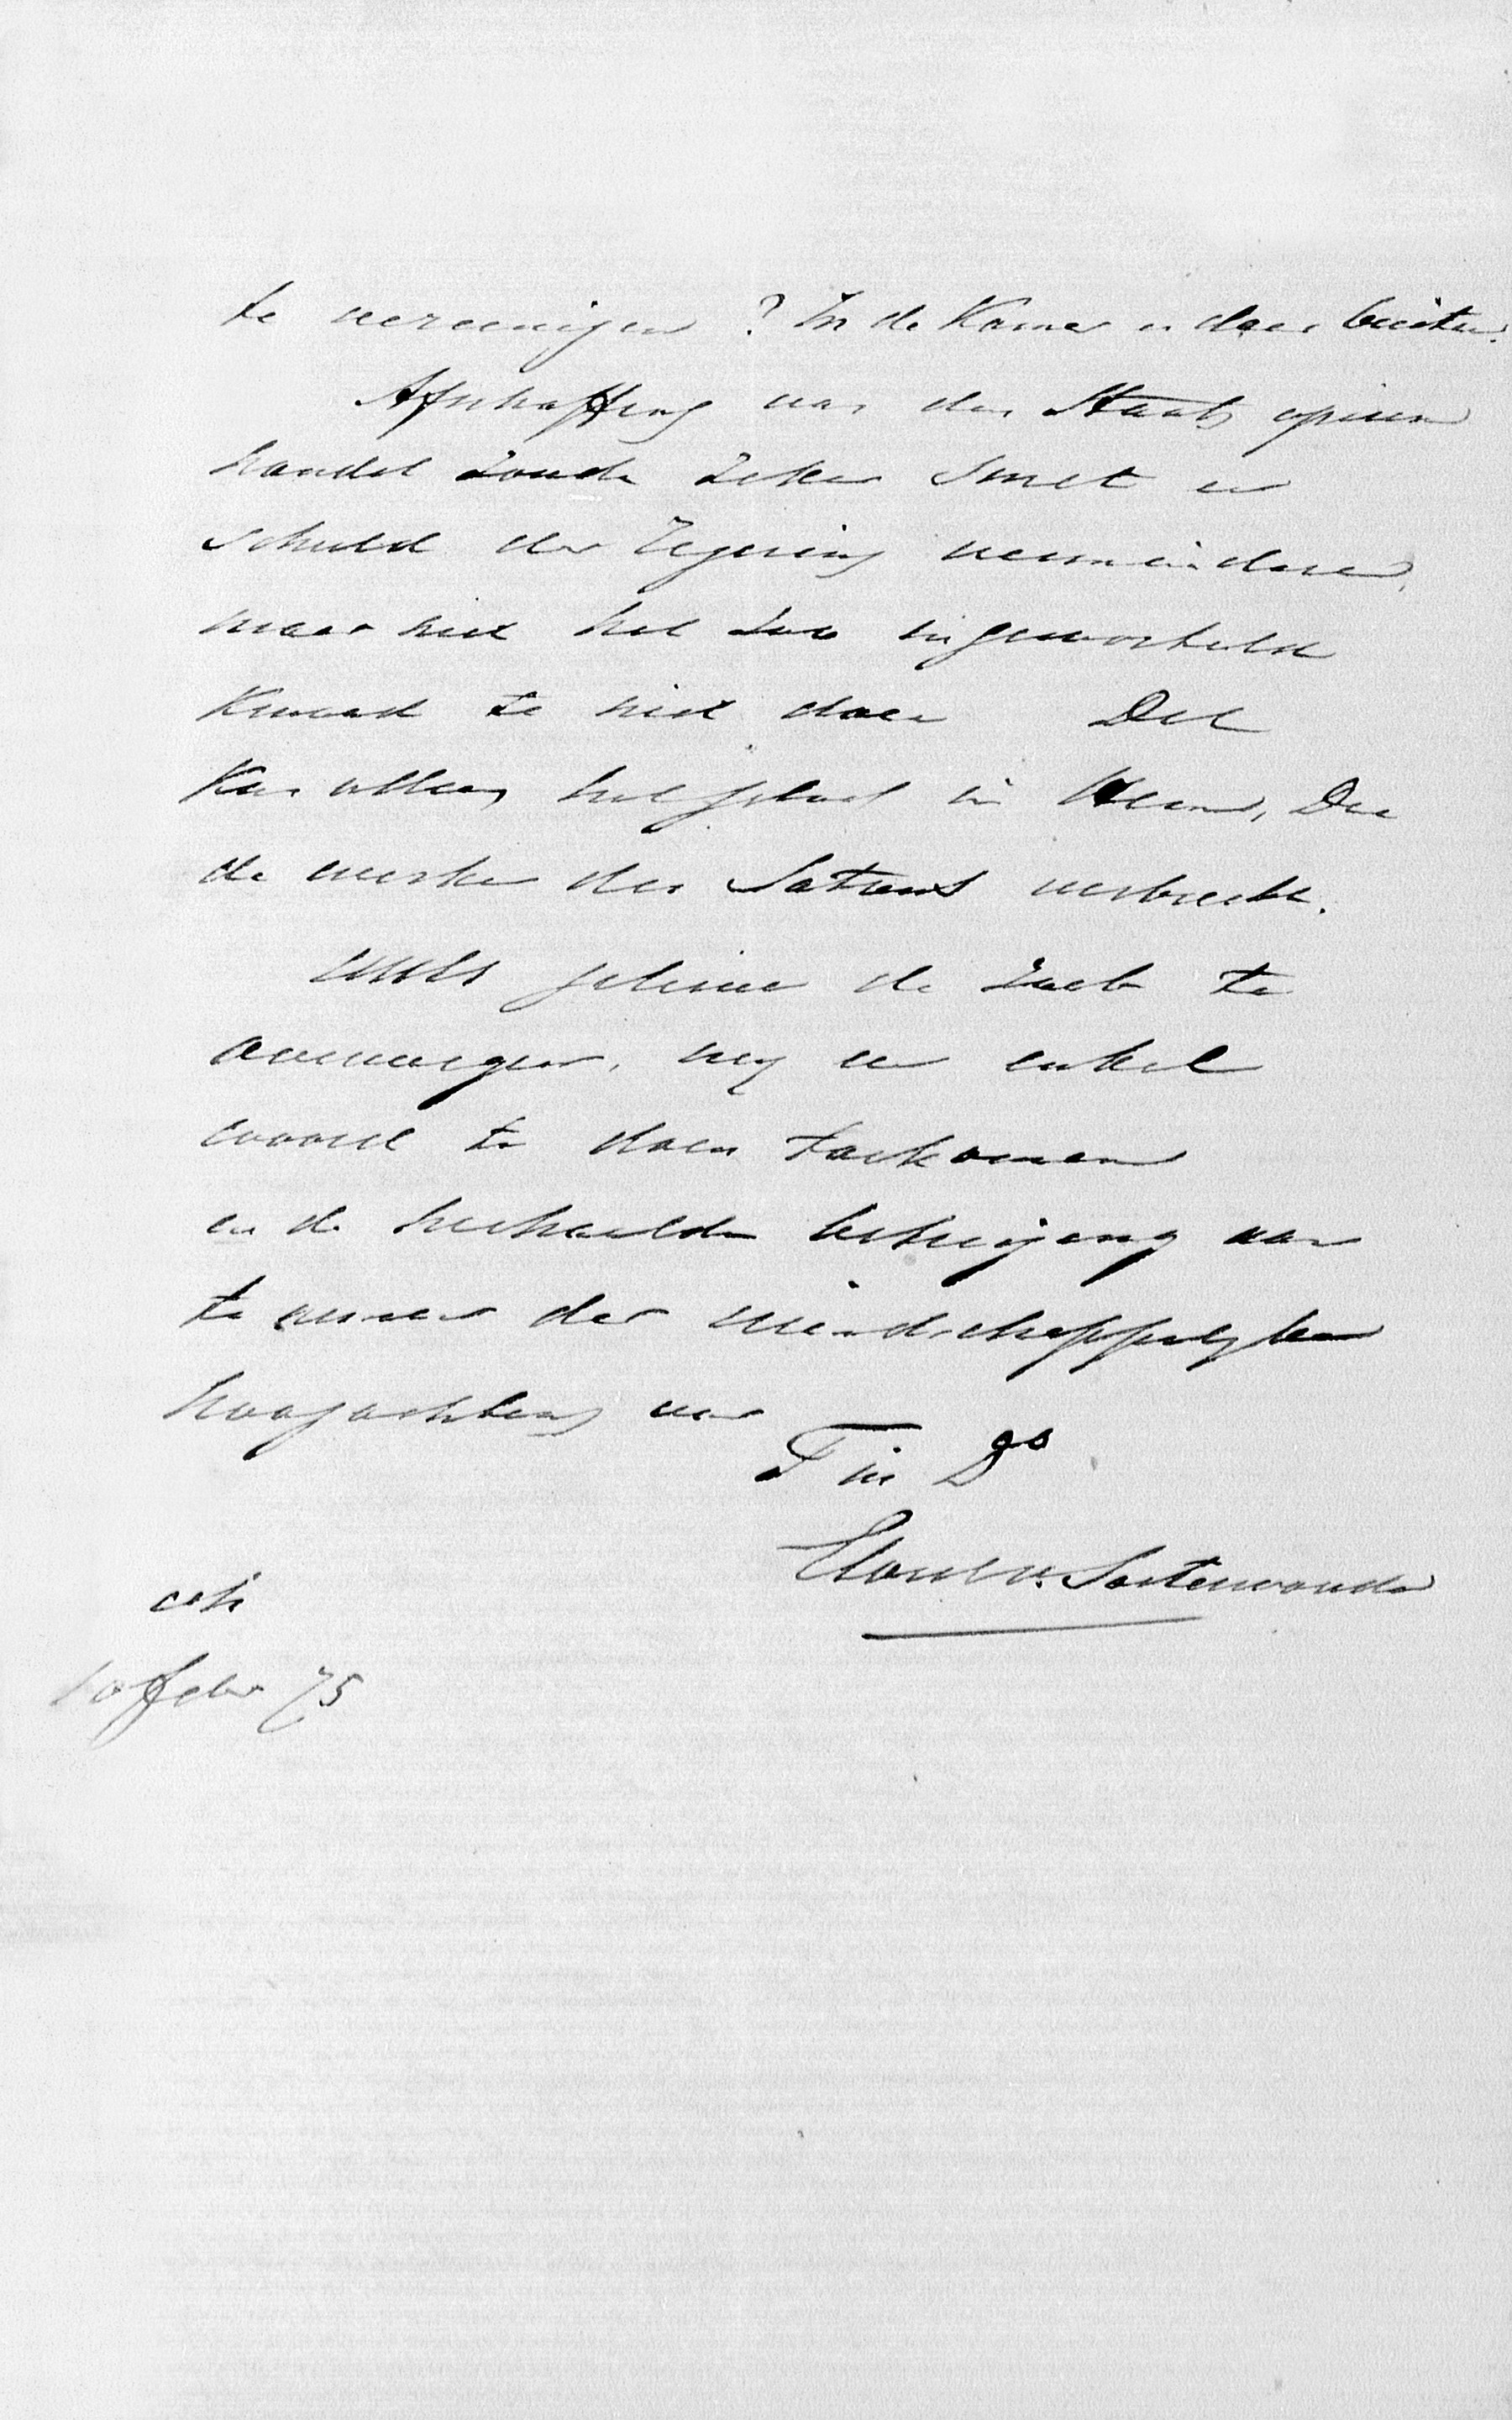 te vereenigen? In de Kamer en daar buiten.
Afschaffing van den Staats opium
handel zoude zeker smet en
schuld der regering verminderen,
maar niet het zoo ingeworteld
kwaad te niet doen Dit
kan alleen het geloof in Hem, Die
de werken des Satans verbreekt.
UWEG gelieve de zaak te
overwegen, mij een enkel
woord te doen toekomen
en de herhaalde betuiging aan
te nemen der vriendschappelijken
hoogachting van
T in D°
Elout v. Soeterwoude
10 Febr 75